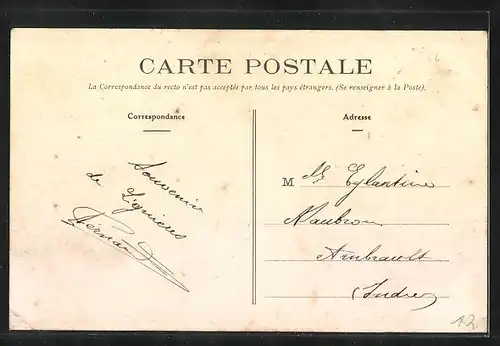 CARTE POSTALE
La Correspondance du recto n'est pas acceptée par tous les pays étrangers. (Se renseigner à la Poste).
Correspondance
Souvenir
de Lignières
Fernand
Adresse
M Eglantine
Naubron
Ambrault
(Indre)